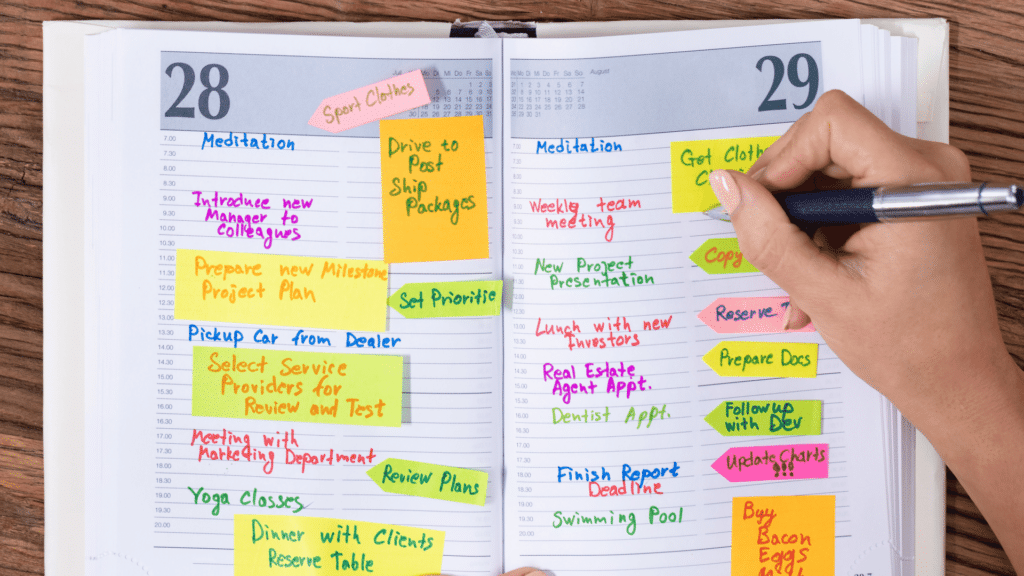 28
Sport Clothes
Meditation
Drive to
Post
Ship
Packages
Introduce new
Manager to
Colleagues
Prepare new Milestone
Project Plan
Set Prioritie
Pickup Car from Dealer
Select Service
Providers for
Review and Test
Meeting with
Marketing Department
Review Plans
Yoga Classes
Dinner with Clients
Reserve Table
29
August
Meditation
Get Cloth
Weekly team
meeting
Copy
New Project
Presentation
Reserve
Lunch with new
Investors
Prepare Docs
Real Estate
Agent Appt.
Dentist Appt.
Followup
with Dev
Update Charts
!!!
Finish Report
Deadline
Swimming Pool
Buy
Bacon
Eggs